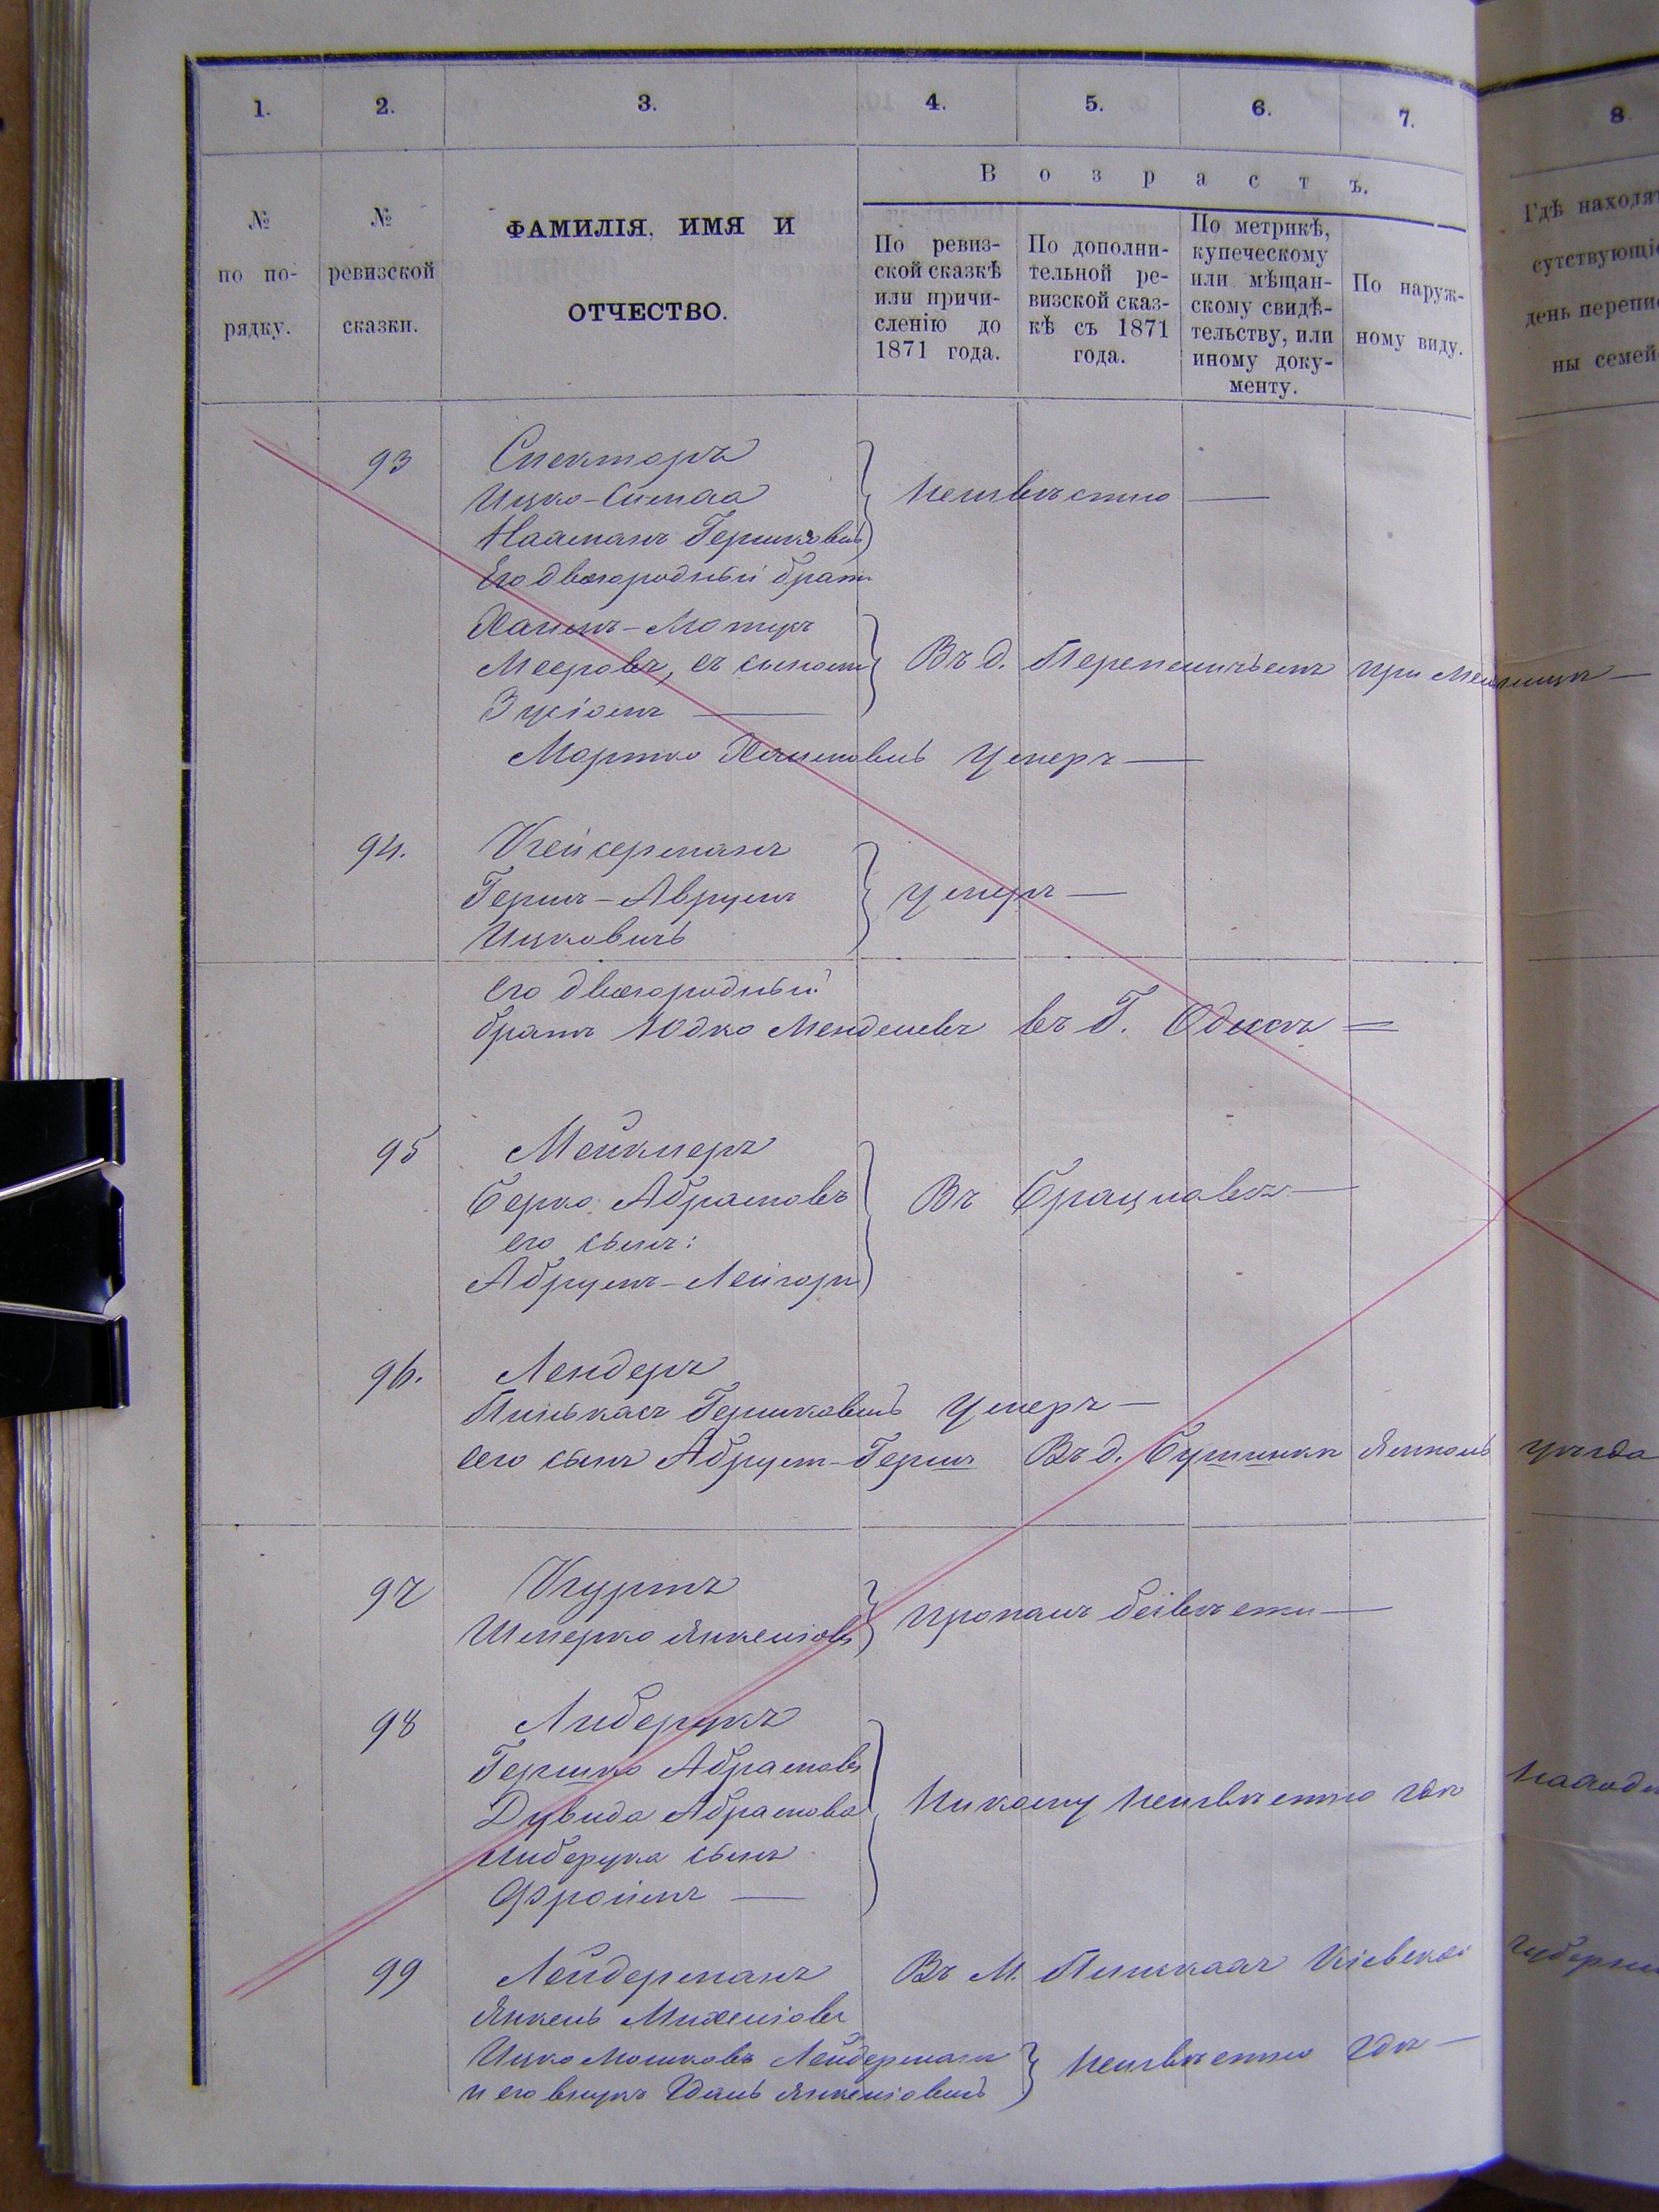 1.
2.
3.
4.
5.
6.
7.
8
№
по по-
рядку.
№
ревизской
сказки.
ФАМИЛІЯ, ИМЯ И
ОТЧЕСТВО.
Возрастъ.
По ревиз-
ской сказкѣ
или причи-
сленію до
1871 года.
По дополни-
тельной ре-
визской сказ-
кѣ съ 1871
года.
По метрикѣ,
купеческому
или мѣщан-
скому свидѣ-
тельству, или
иному доку-
менту.
По наруж-
ному виду.
Гдѣ находят
сутствующіе
день перепис
ны семей
93 Спекторъ
Ицко-Симха
Нахманъ Гершковъ
Неизвѣстно —
Его двоюродный братъ
Хаимъ-Мотя
Мееровъ, съ сыномъ
Зусіомъ —
Въ д. при
Мортко Хаимовъ умеръ —
94. Кейсерманъ
Гершъ-Аврумъ
Ицковичъ
умеръ —
его двоюродный
братъ Юдко Менделевъ въ Г. Одессѣ =
95 Меклеръ
Берко Абрамовъ
его сынъ:
Абрумъ-Лейзоръ
Въ Брацлавѣ —
96. Лендеръ
Пинькасъ Гершковъ умеръ —
его сынъ Абрумъ-Гершъ Въ д. Ямполь уѣзда
97 Куртъ
Шмерко Янкеліовъ
пропалъ безвѣсти —
98 Либерукъ
Гершко Абрамовъ
Дувида Абрамова
Либерука сынъ
Фроимъ —
Никому неизвѣстно гдѣ находи
99 Лейдерманъ Въ М. Кіевской губерніи
Янкель Михеліовъ
Ицко Мошковъ Лейдерманъ
и его внукъ Янкеліовъ
неизвѣстно гдѣ —